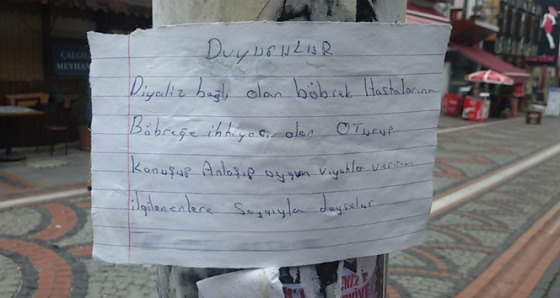 ÇALGILI
MEYHANE
DUYURULUR
Diyaliz bağlı olan böbrek Hastalarının
Böbreğe ihtiyacı olan OTurup
Konuşup Anlaşıp uygun viyatla veririm
ilgilenenlere Saygıyla duyrulur